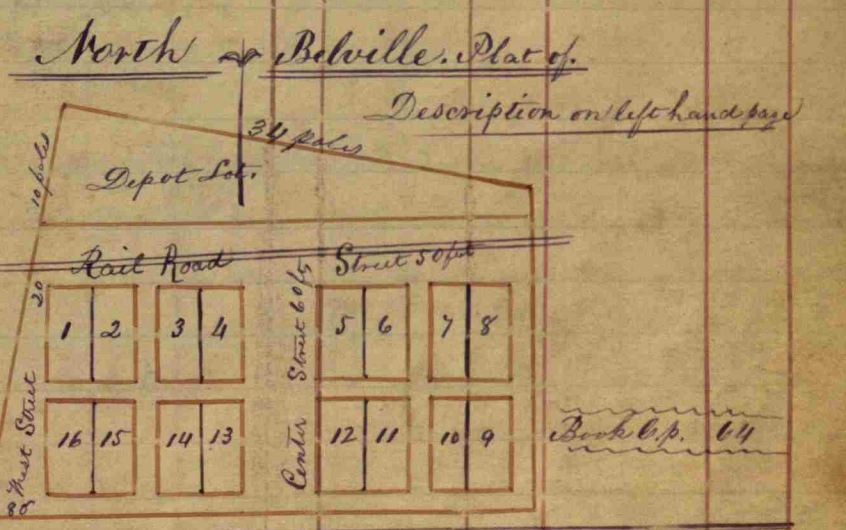 North Belville. Plat of.
Description on left hand page
34 poles
10 poles
Depot Lot.
Rail Road Street 50 feet
20
Center Street 60 ft
West Street
80
1 2 3 4 5 6 7 8
16 15 14 13 12 11 10 9
Book C. p. 64